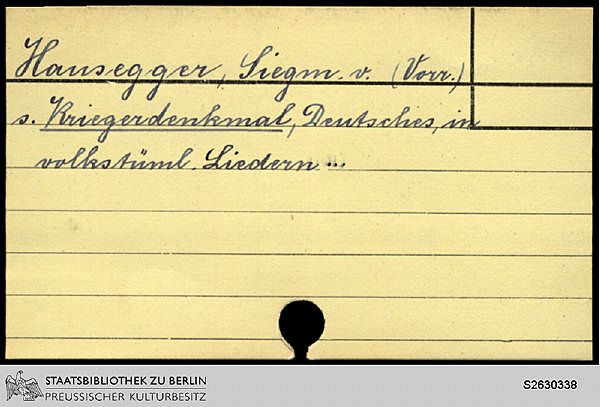 Hausegger, Siegm. v. (Vorr.)
s. Kriegerdenkmal, Deutsches, in
volkstüml. Liedern ...
STAATSBIBLIOTHEK ZU BERLIN
PREUSSISCHER KULTURBESITZ
S2630338